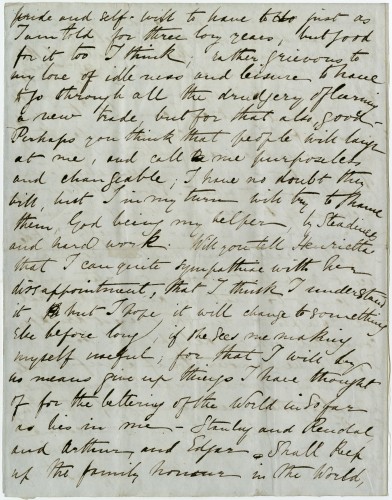 pride and self-will to have to do just as
I am told for three long years, but good
for it too I think; rather grievous to
my love of idleness and leisure to have
to go through all the drudgery of learning
a new trade, but for that also, good —
Perhaps you think that people will laugh
at me, and call me purposeless
and changeable; I have no doubt they
will, but I in my turn will try to shame
them, God being my helper, by steadiness
and hard work. Will you tell Henrietta
that I can quite sympathise with her
disappointment, that I think I understand
it but I hope it will change to something
else before long, if she sees me making
myself useful; for that I will by
no means give up things I have thought
of for the bettering of the World in so far
as lies in me — Stanley and Rendal,
and Arthur, and Edgar shall keep
up the family honour in the World,